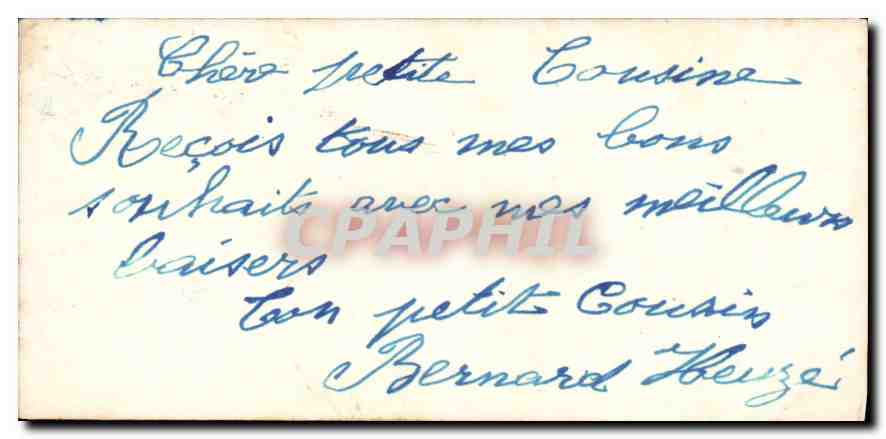 Chère petite Cousine
Reçois tous mes bons
souhaits avec mes meilleurs
CPAPHIL
baisers
Ton petit Cousin
Bernard Heuzé